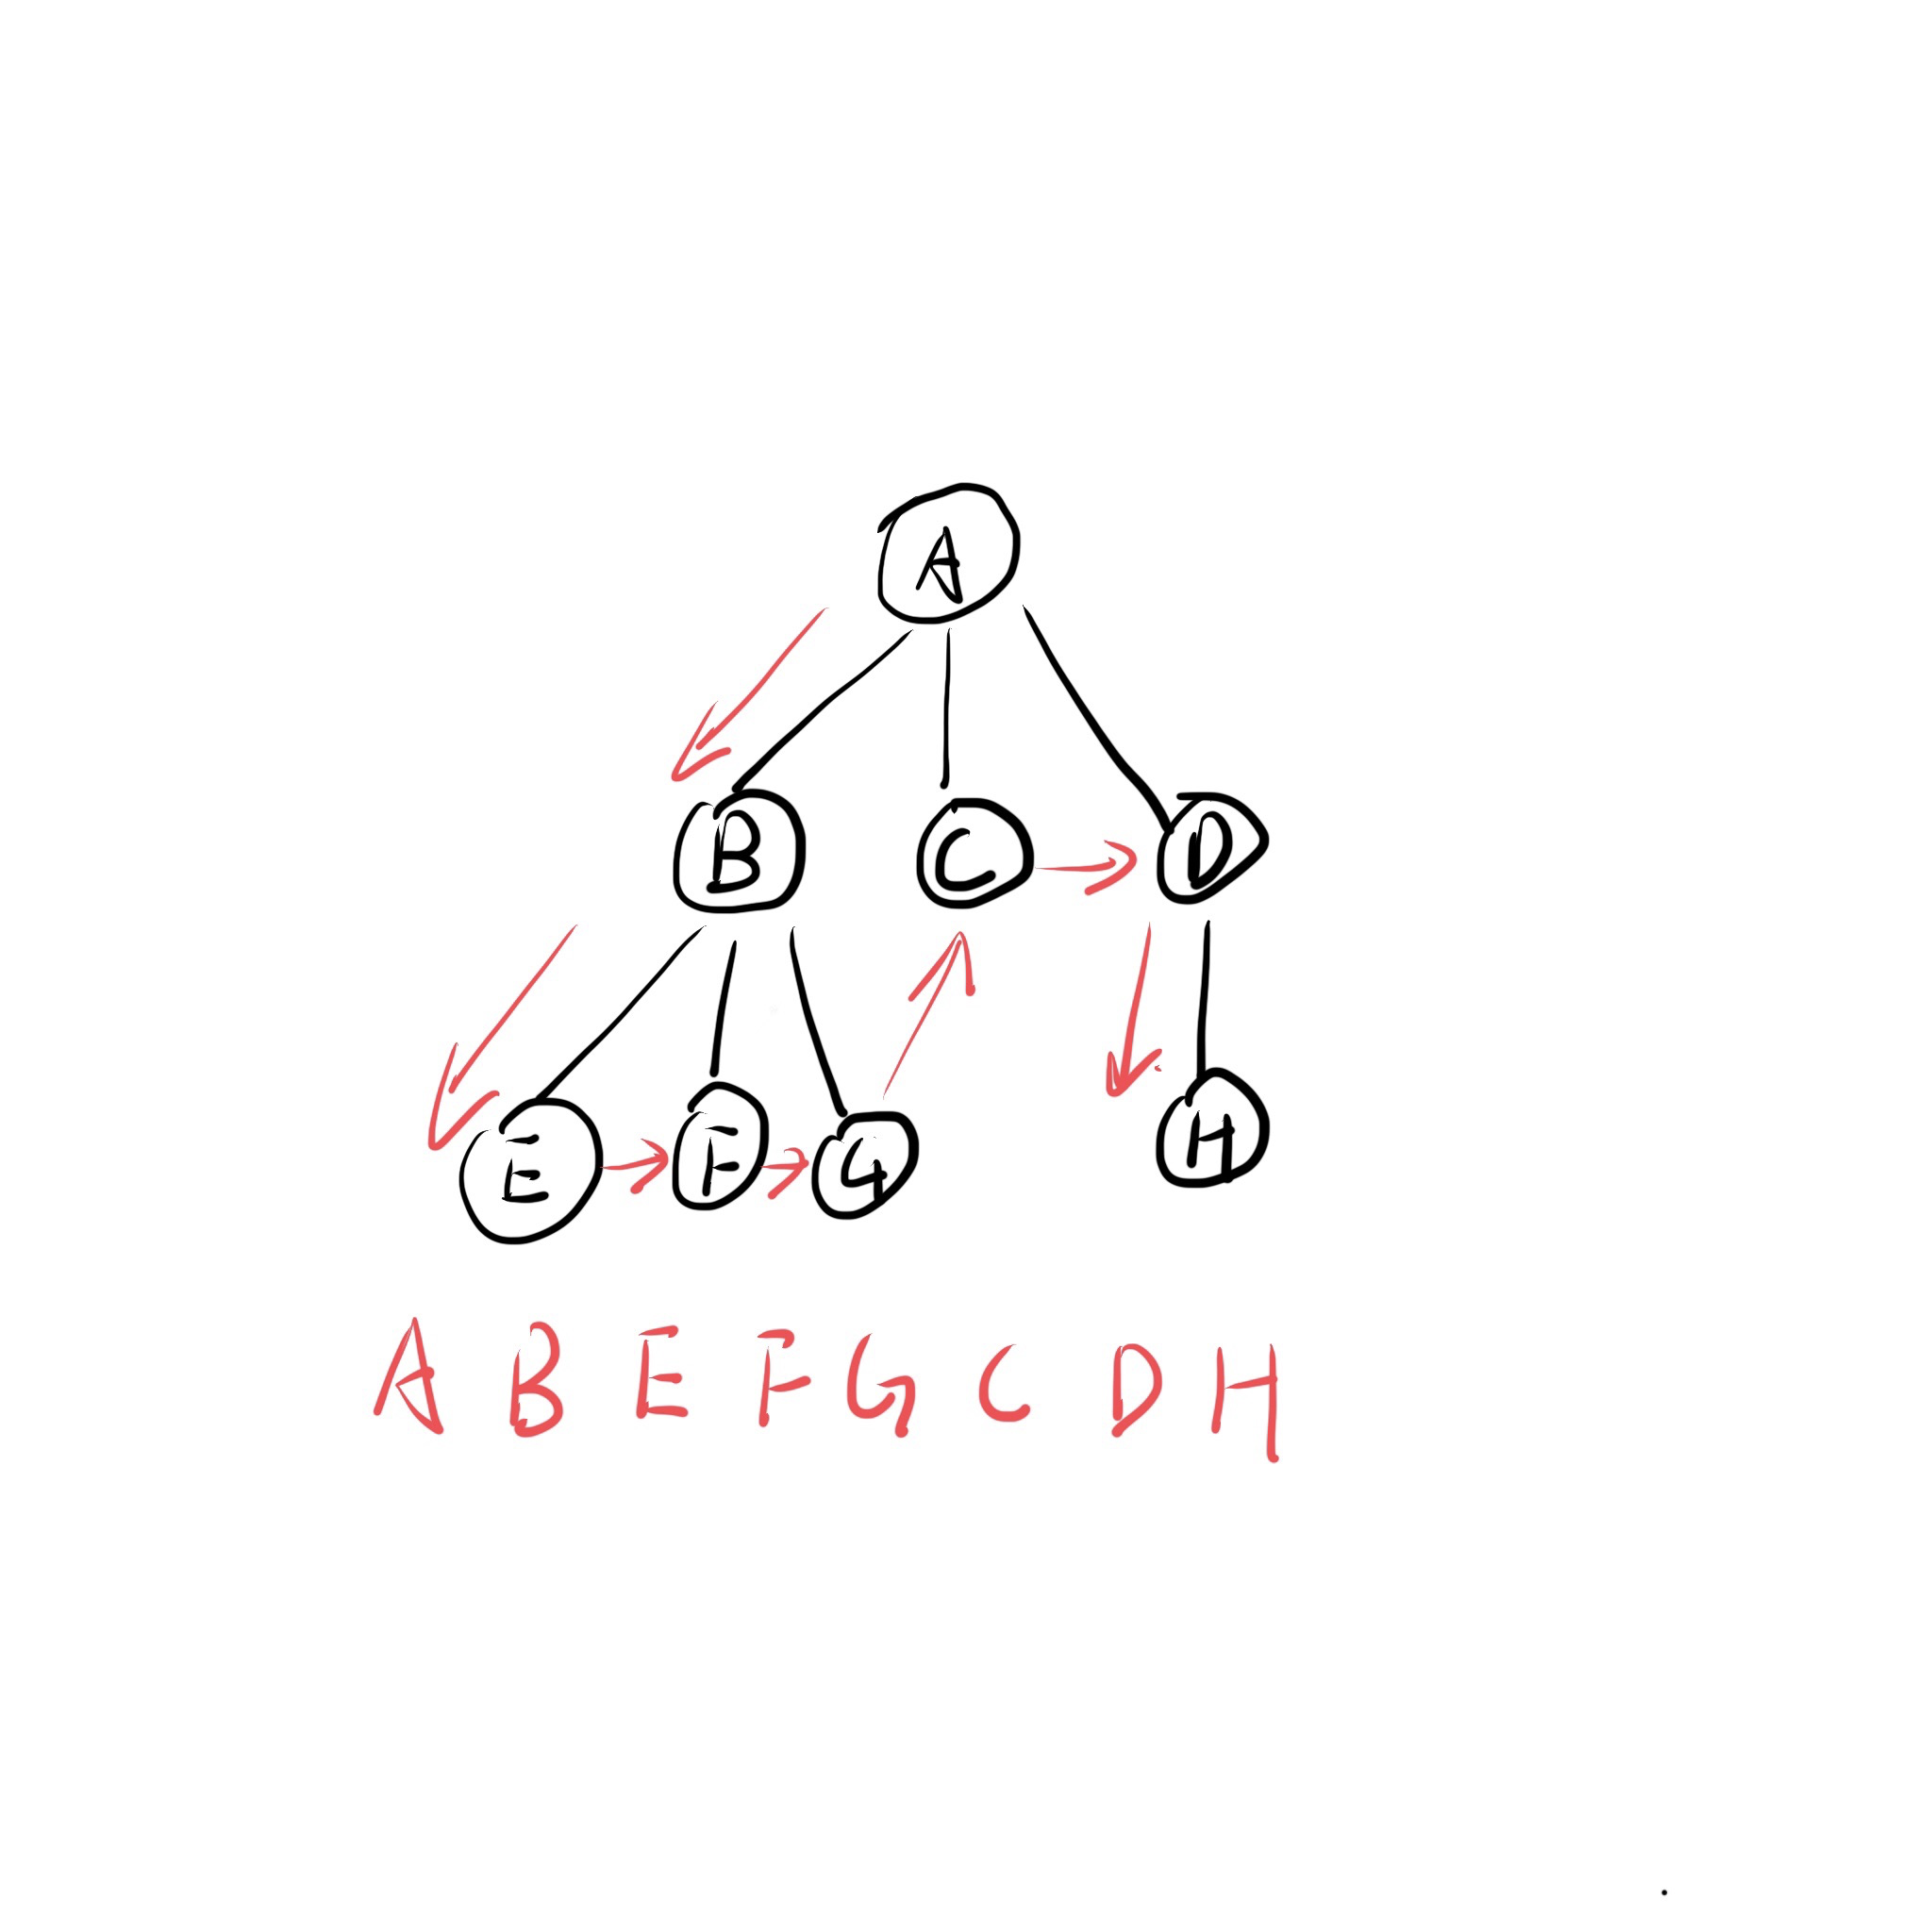 A
B C D
E F G H
A B E F G C D H